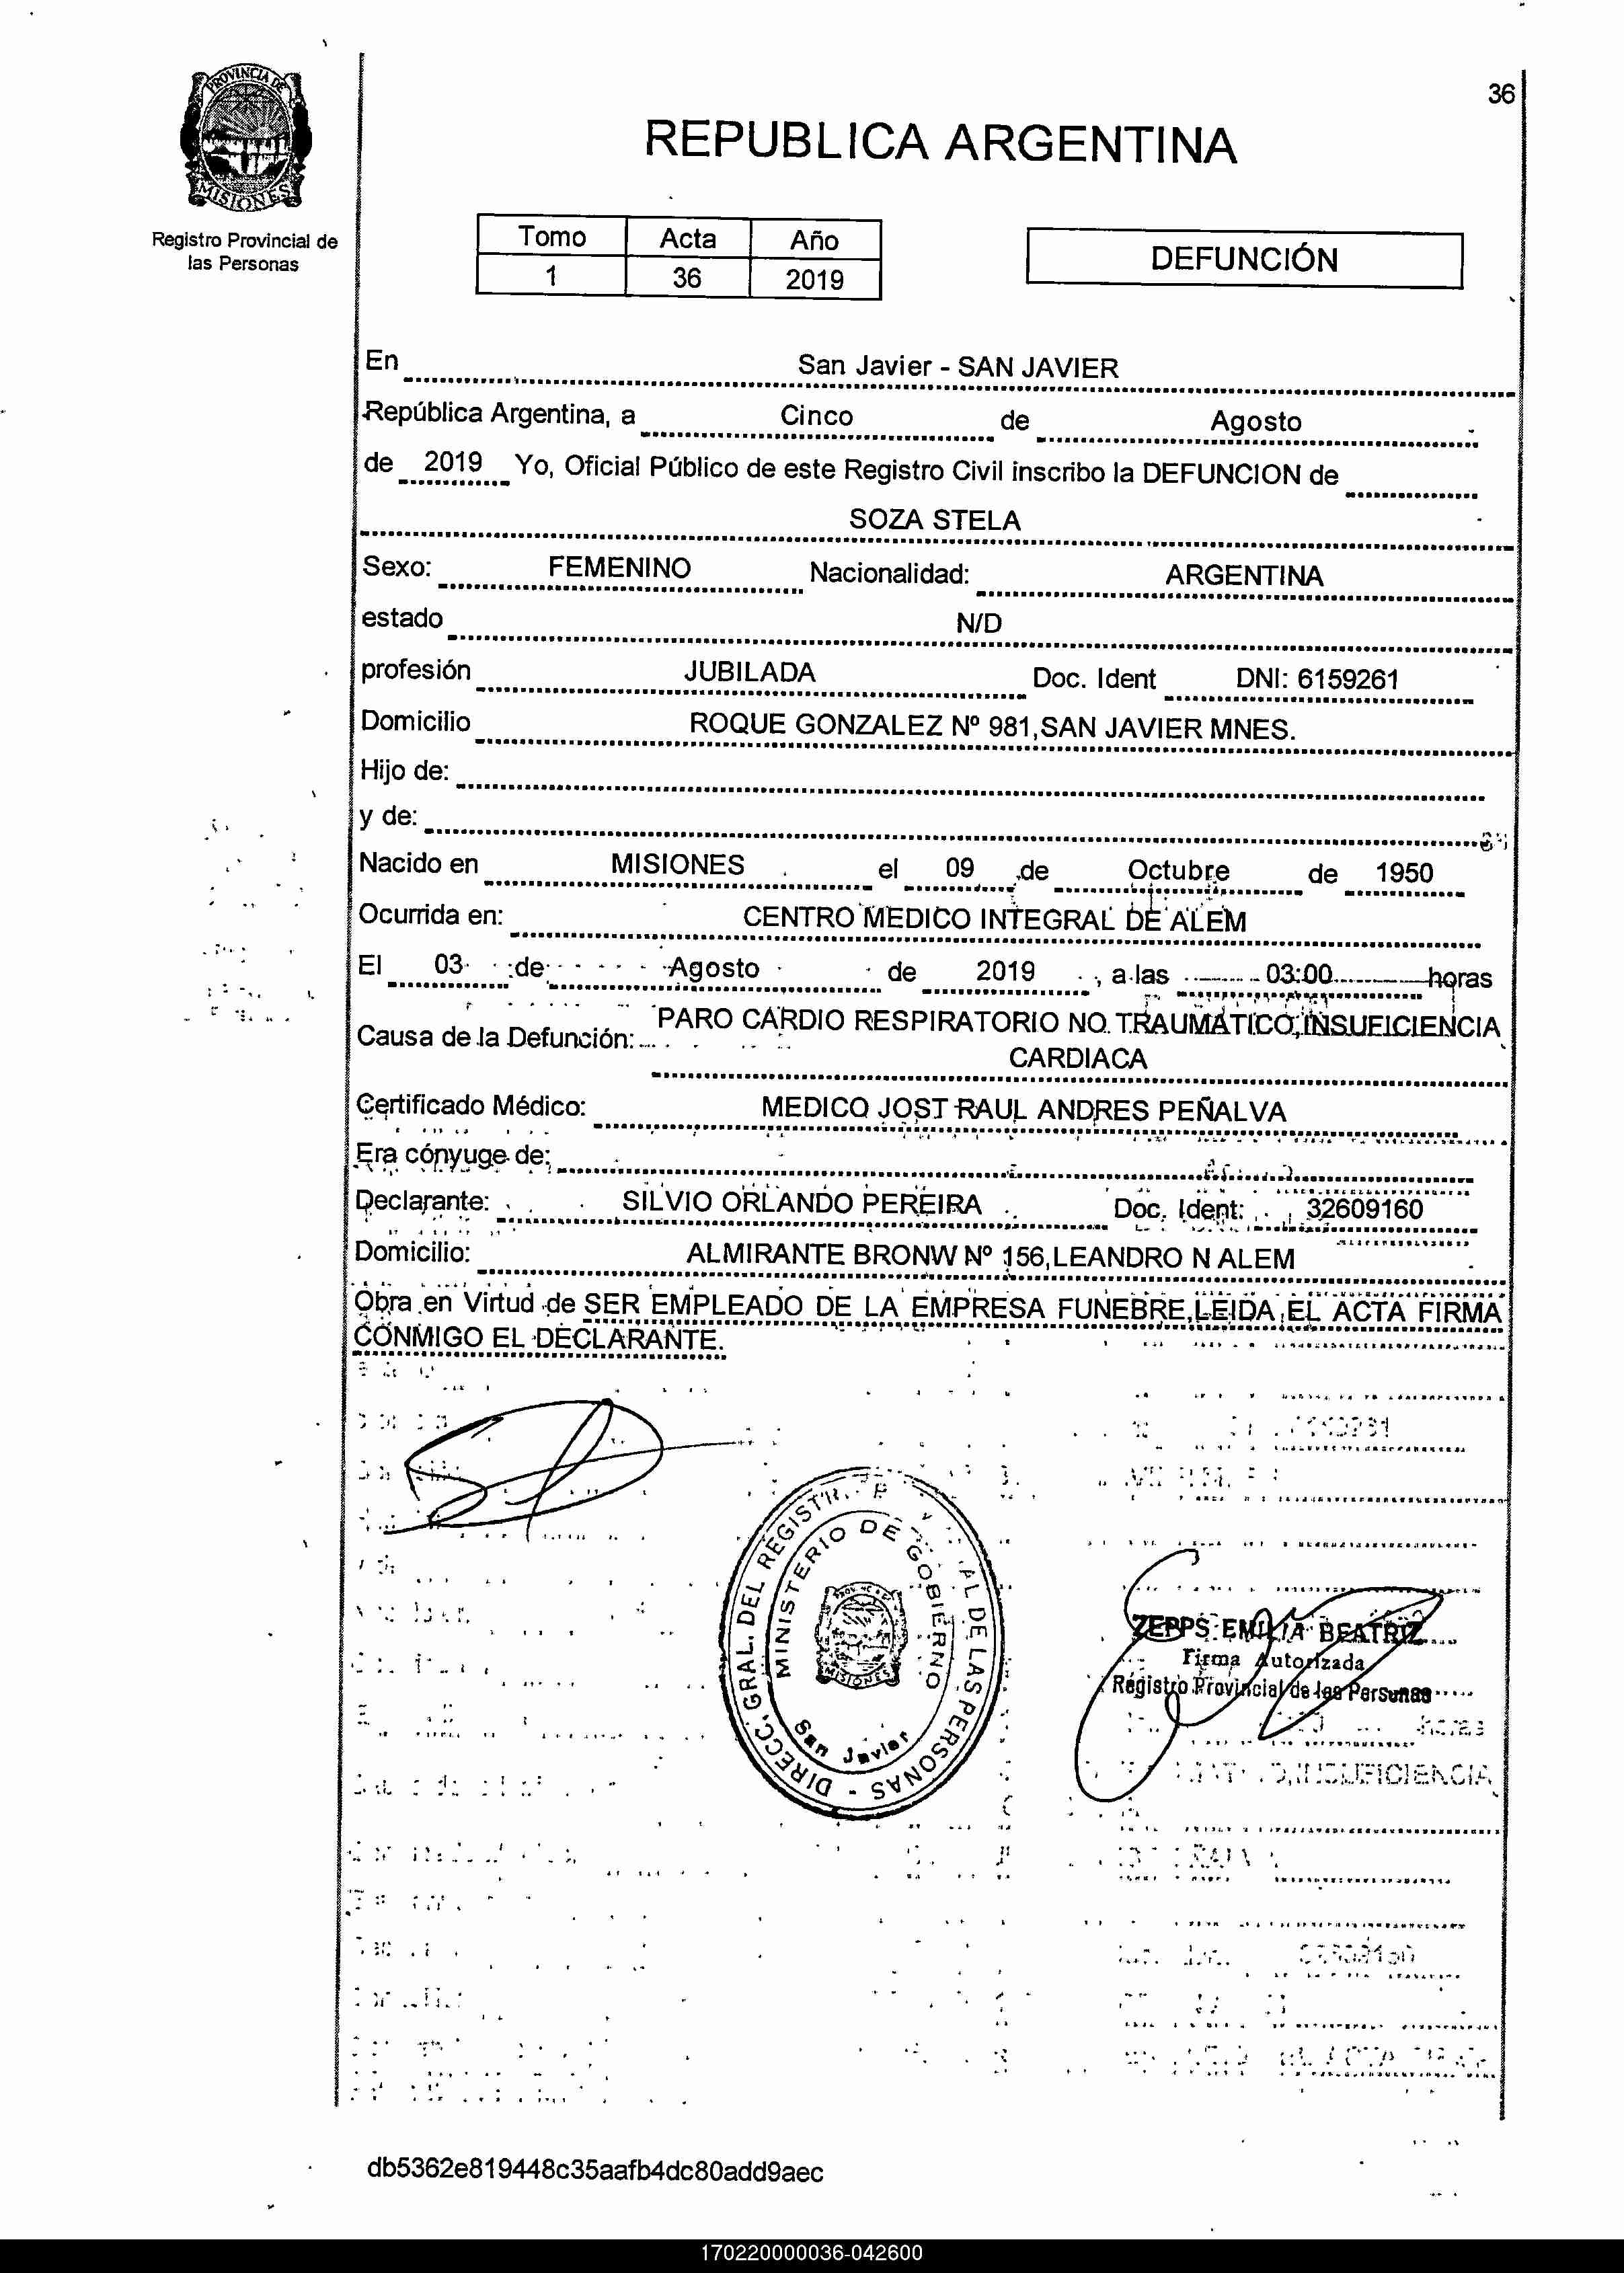 36
PROVINCIA DE
MISIONES
Registro Provincial de
las Personas
REPUBLICA ARGENTINA
Tomo Acta Año
1 36 2019
DEFUNCIÓN
En San Javier - SAN JAVIER
República Argentina, a Cinco de Agosto
de 2019 Yo, Oficial Público de este Registro Civil inscribo la DEFUNCION de
SOZA STELA
Sexo: FEMENINO Nacionalidad: ARGENTINA
estado N/D
profesión JUBILADA Doc. Ident DNI: 6159261
Domicilio ROQUE GONZALEZ Nº 981,SAN JAVIER MNES.
Hijo de:
y de:
Nacido en MISIONES el 09 de Octubre de 1950
Ocurrida en: CENTRO MEDICO INTEGRAL DE ALEM
El 03 de Agosto de 2019 , a las 03:00 horas
Causa de la Defunción: PARO CARDIO RESPIRATORIO NO TRAUMATICO,INSUFICIENCIA
CARDIACA
Certificado Médico: MEDICO JOST RAUL ANDRES PEÑALVA
Era cónyuge de:
Declarante: SILVIO ORLANDO PEREIRA Doc. Ident: 32609160
Domicilio: ALMIRANTE BRONW Nº 156,LEANDRO N ALEM
Obra en Virtud de SER EMPLEADO DE LA EMPRESA FUNEBRE,LEIDA EL ACTA FIRMA
CONMIGO EL DECLARANTE.
DIRECC. GRAL. DEL DE LAS PERSONAS -
MINISTERIO DE GOBIERNO
MISIONES
San Javier
ZEPPS EMILIA BEATRIZ
Firma Autorizada
Registro Provincial de las Personas
db5362e819448c35aafb4dc80add9aec
170220000036-042600